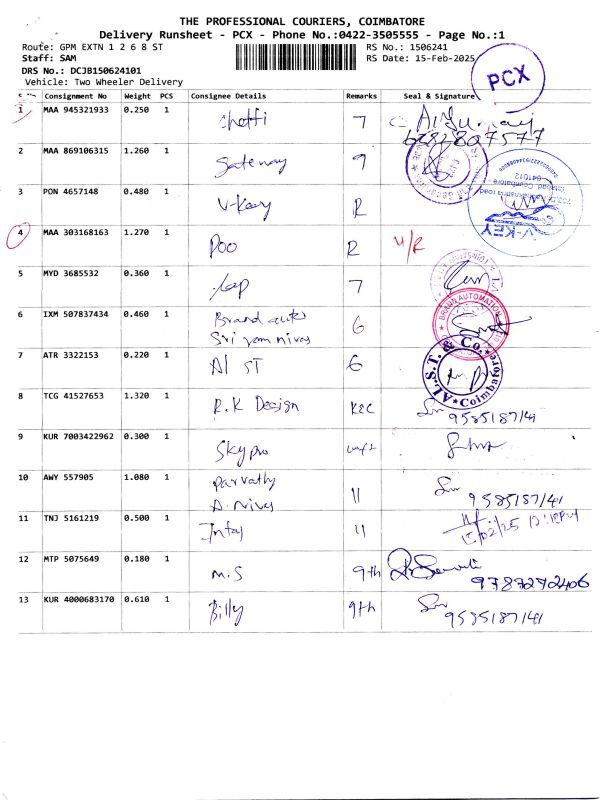 THE PROFESSIONAL COURIERS, COIMBATORE
Delivery Runsheet - PCX - Phone No.:0422-3505555 - Page No.:1
Route: GPM EXTN 1 2 6 8 ST
RS No.: 1506241
Staff: SAM
RS Date: 15-Feb-2025
DRS No.: DCJB150624101
Vehicle: Two Wheeler Delivery
PCX
Consignment No Weight PCS Consignee Details Remarks Seal & Signature
1 MAA 945321933 0.250 1 Chetti 7
2 MAA 869106315 1.260 1 Gateway 9
3 PON 4657148 0.480 1 V-Key R
V-KEY
4 MAA 303168163 1.270 1 Poo R
5 MYD 3685532 0.360 1 7
6 IXM 507837434 0.460 1 Brand auto 6
Sri ram nivas
BRAND AUTOMATION
7 ATR 3322153 0.220 1 Al ST 6
AL. S.T. & Co. Coimbatore
8 TCG 41527653 1.320 1 R.K Design
9585187141
9 KUR 7003422962 0.300 1 Skypro
10 AWY 557905 1.080 1 Parvathy 11
A. Nivas
9585187141
11 TNJ 5161219 0.500 1 11
15/02/25
12 MTP 5075649 0.180 1 M.S 9th
9787292406
13 KUR 4000683170 0.610 1 Billy 9th
9585187141